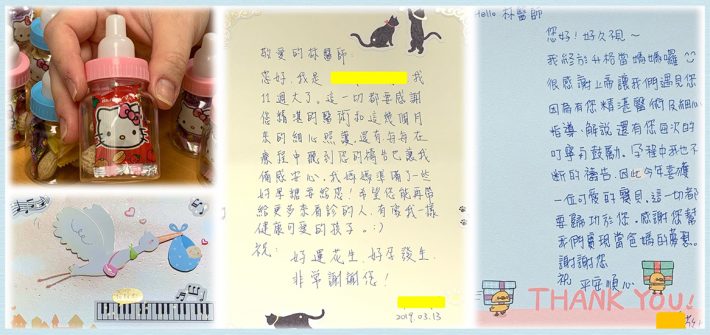 HELLO KITTY
敬愛的林醫師:
您好,我是 我
11週大了。這一切都要感謝
您精湛的醫術和這幾個月
來的細心照護,還有每每在
療程中聽到您的禱告也讓我
備感安心,我媽媽準備了一些
好 想要給您!希望您能再帶
給更多來看診的人,有像我一樣
健康可愛的孩子。:)
祝: 好運花生 好孕發生
非常謝謝您!
2019.03.13
Hello 林醫師
您好!好久不見~
我終於升格當媽媽囉
很感謝上帝讓我們遇見您
因為有您精湛醫術及細心
指導、解說還有您每次的
叮嚀與鼓勵。孕程中我也不
斷的禱告,因此今年喜獲
一位可愛的寶貝。這一切都
要歸功於您。感謝您幫
我們實現當爸媽的夢想。
謝謝您
祝 平安順心
THANK YOU!